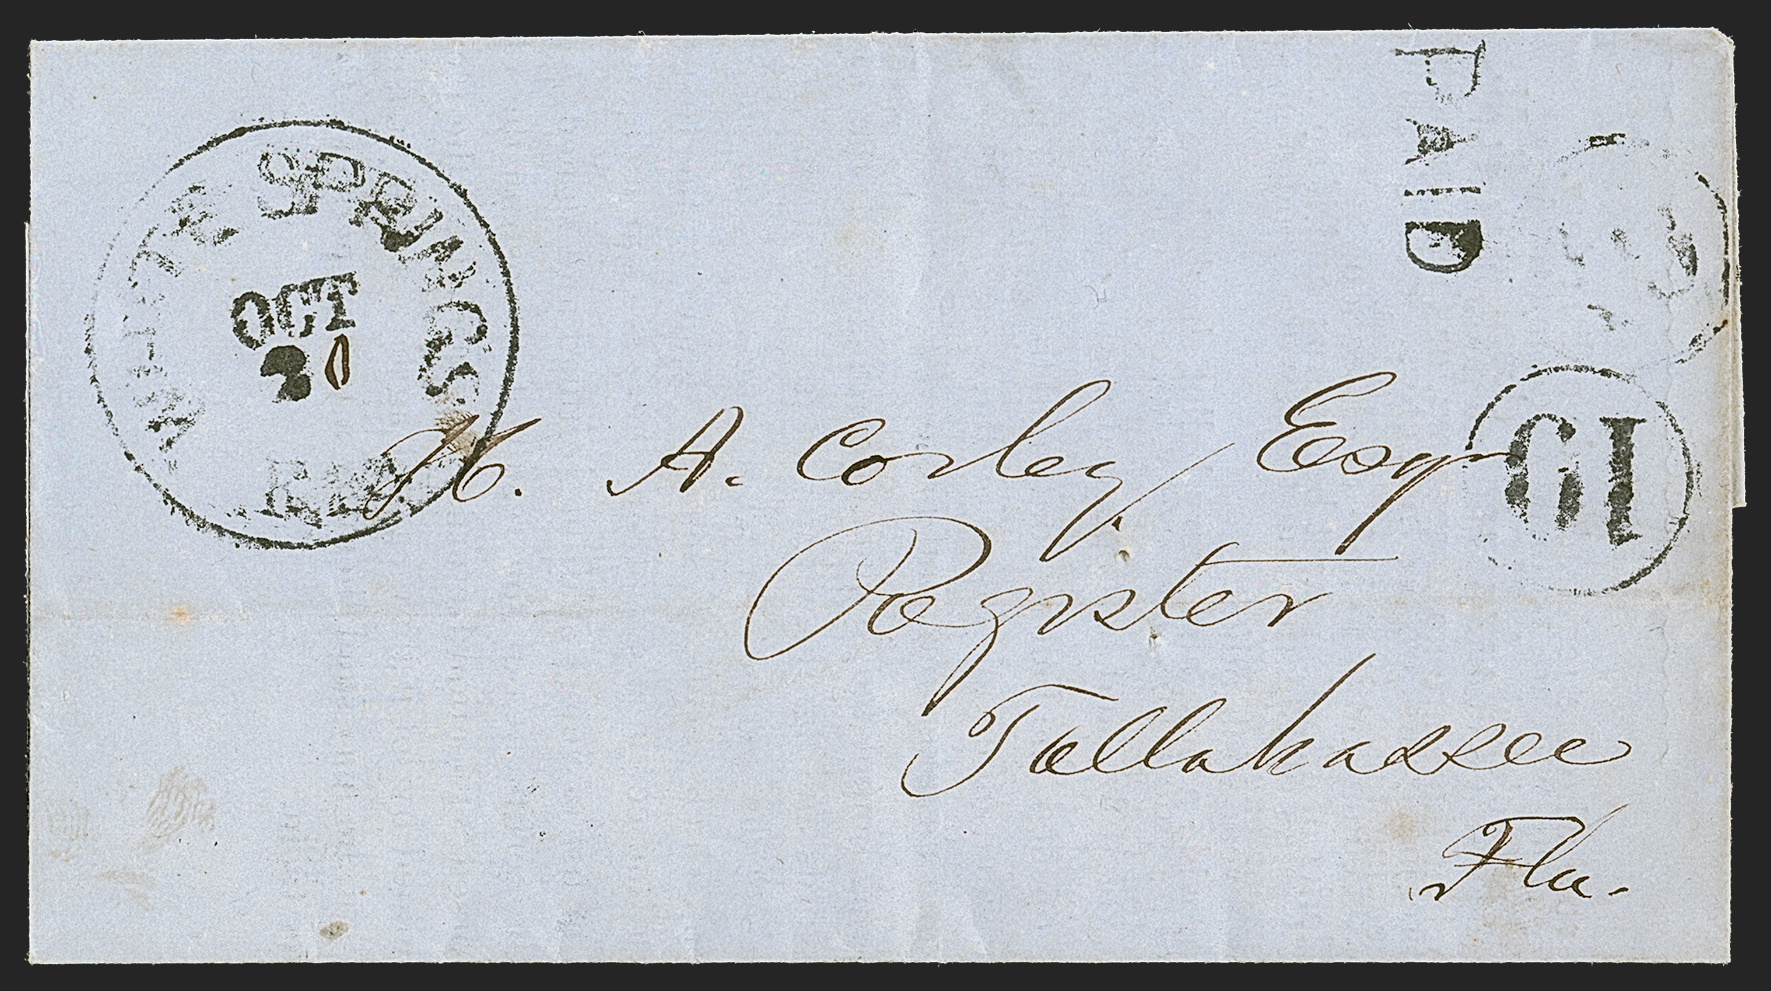 WHITE SPRINGS
OCT
20
Flo.
PAID
10
H. A. Corley, Esqr
Register
Tallahassee
Fla.